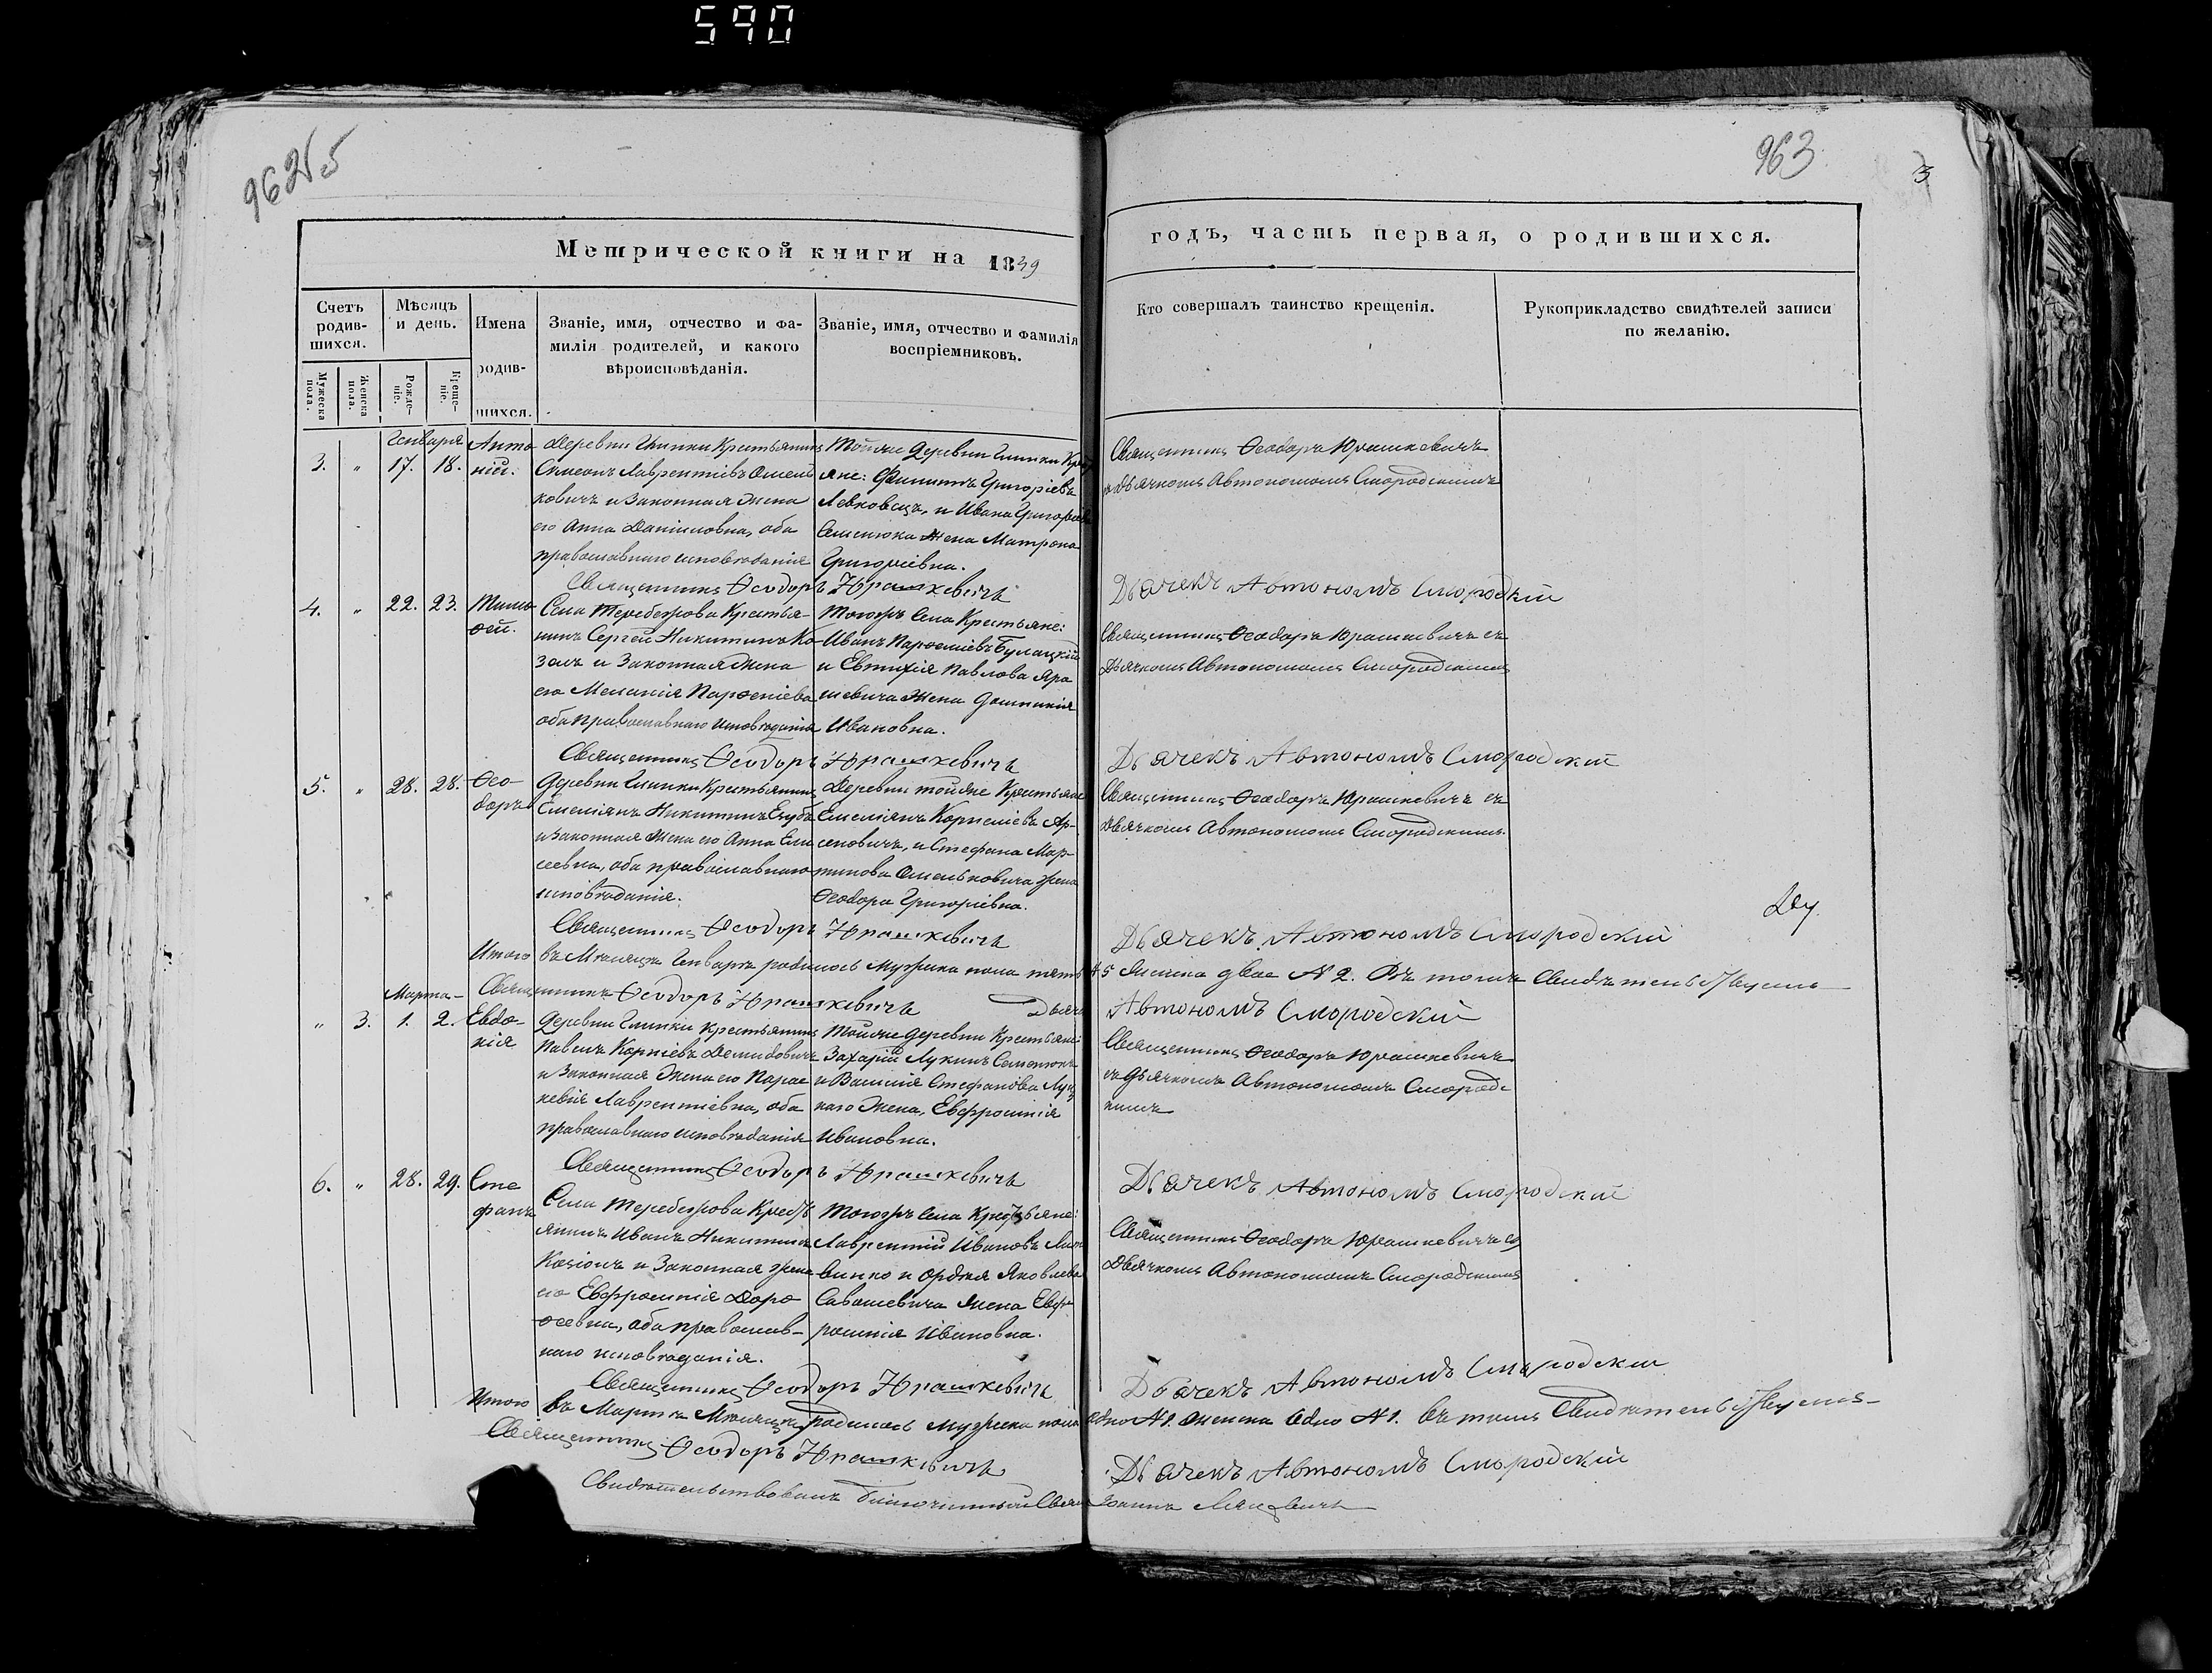 590
962об
963
3
Метрической книги на 1839
годъ, часть первая, о родившихся.
Счетъ родив-шихся.
Мѣсяцъ и день.
Имена родив-шихся.
Званіе, имя, отчество и фа-
милія родителей, и какого
вѣроисповѣданія.
Званіе, имя, отчество и фамилія
воспріемниковъ.
Кто совершалъ таинство крещенія.
Рукоприкладство свидѣтелей записи
по желанію.
Мужеска пола.
Женска пола.
Рожде-ніе.
Креще-ніе.
Генваря
3. " 17. 18. Анто-ній.
Деревни Глинки Крестьянинъ
Симеонъ Лаврентіевъ Омель
ковичъ и Законная Жена
его Анна Даніиловна, оба
православнаго исповѣданія
Тойже Деревни Глинки Крест
яне: Филиппъ Григоріевъ
Левковецъ, и Ивана Григорьева
Семенюка Жена Матрона
Григоріевна.
Священникъ Ѳеодоръ Юрашкевичъ
съ Дьячкомъ Автономомъ Смородскимъ
Священникъ Ѳеодоръ Юрашкевичъ
Дьячекъ Автономъ Смородскій
4. " 22. 23. Тимо-ѳей.
Села Теребежова Крестья-
нинъ Сергей Никитинъ Ко-
зелъ и Законная Жена
его Меланія Парѳеніева
оба православнаго исповѣданія
Тогожъ Села Крестьяне:
Иванъ Парѳеніевъ Булацкій
и Евтихія Павлова Яра
шевича Жена Домникія
Ивановна.
Священникъ Ѳеодоръ Юрашкевичъ съ
Дьячкомъ Автономомъ Смородскимъ
Священникъ Ѳеодоръ Юрашкевичъ
Дьячекъ Автономъ Смородскій
5. " 28. 28. Ѳео-доръ
Деревни Глинки Крестьянинъ
Емеліянъ Никитинъ
и Законная Жена его Анна Ели
сеевна, оба православнаго
исповѣданія.
Деревни тойже Крестьяне
Емеліянъ Корнеліевъ Ар-
сеновичъ, и Стефана Мар-
тинова Омельковича жена
Ѳеодора Григоріевна.
Священникъ Ѳеодоръ Юрашкевичъ съ
Дьячкомъ Автономомъ Смородскимъ.
Священникъ Ѳеодоръ Юрашкевичъ
Дьячекъ Автономъ Смородскій
Итого въ Мѣсяцѣ Генварѣ родилось мужеска пола пять № 5 женска двое № 2. Въ томъ Свидѣтельствуемъ
Священникъ Ѳеодоръ Юрашкевичъ Дьячекъ Автономъ Смородскій
Марта
" 3. 1. 2. Евдо-кія
Деревни Глинки Крестьянинъ
Павелъ Корніевъ Демидовичъ
и Законная Жена его Парас
кевія Лаврентіевна, оба
православнаго исповѣданія
Тойже деревни Крестьяне:
Захарій Лукинъ Семенюкъ
и Василія Стефанова Луц
каго Жена, Евфросинія
Ивановна.
Священникъ Ѳеодоръ Юрашкевичъ
съ Дьячкомъ Автономомъ Смородс
кимъ
Священникъ Ѳеодоръ Юрашкевичъ
Дьячекъ Автономъ Смородскій
6. " 28. 29. Сте фанъ
Села Теребежова Крестъ
янинъ Иванъ Никитинъ
и Законная жена
его Евфросинія Доро
ѳеевна, оба православ-
наго исповѣданія.
Тогожъ Села Крестьяне:
Лаврентій Ивановъ Лит
винко и Ордея Яковлева
Савашевича Жена Евф
росинія Ивановна.
Священникъ Ѳеодоръ Юрашкевичъ съ
Дьячкомъ Автономомъ Смородскимъ
Священникъ Ѳеодоръ Юрашкевичъ
Дьячекъ Автономъ Смородскій
Итого въ Мартѣ Мѣсяцѣ родилось мужеска пола одно № 1. женска одно № 1. Въ томъ Свидѣтельствуемъ
Священникъ Ѳеодоръ Юрашкевичъ
Дьячекъ Автономъ Смородскій
Свидѣтельствовалъ Благочинный